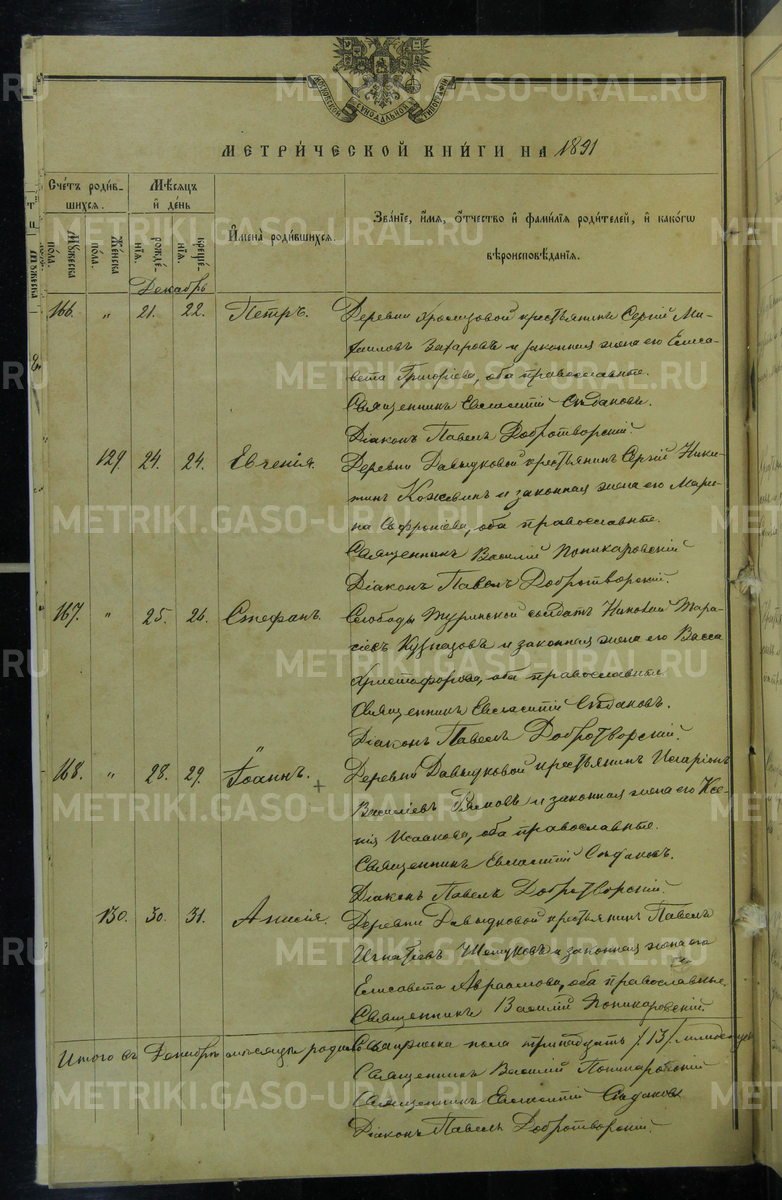 МОСКОВСКОЙ СѴНОДАЛЬНОЙ ТИПОГРАФІИ
МЕТРИ́ЧЕСКОЙ КНИ́ГИ НА 1891
Сче́тъ роди́в-
шихся.
Мꙋ́жеска
по́ла.
Же́нска
по́ла.
Мѣ́сяцъ
и҆ де́нь
рожде́-
нїя.
креще́-
нїя.
И҆мена̀ роди́вшихся.
Зва́нїе, и҆́мя, ѻ҆́тчество и҆ фами́лїя роди́телей, и҆ како́гѡ
вѣроисповѣ́данїя.
Декабрь
166. „ 21. 22. Петръ. Деревни крестьянинъ Сергій Ми-
хаиловъ Захаровъ и законная жена его Елиса-
вета Григоріева, оба православные.
Священникъ Евгаостій Сѣдаковъ.
Діаконъ Павелъ Добротворскій
129 24. 24. Евгенія. Деревни Давыдковой крестьянинъ Сергій Ники-
тинъ Кожевинъ и законная жена его Мари-
на Софроніева, оба православные.
Священникъ Василій Поникаровскій
Діаконъ Павелъ Добротворскій.
167. „ 25. 26. Стефанъ. Слободы Туринской солдатъ Николай Тара-
сіевъ Кузнецовъ и законная жена его Васса
Христофорова, оба православные.
Священникъ Сѣдаковъ.
Діаконъ Павелъ Добротворскій.
168. „ 28. 29. Іоаннъ. + Деревни Давыдковой крестьянинъ Иларіонъ
Василіевъ и законная жена его Ксе-
нія Исаакова, оба православные.
Священникъ Сѣдаковъ.
Діаконъ Павелъ Добротворскій.
130. 30. 31. Анисія. Деревни Давыдковой крестьянинъ Павелъ
Игнатіевъ и законная жена его
Елисавета Авраамова, оба православные.
Священникъ Василій Поникаровскій.
Итого въ Декабрѣ мѣсяцѣ родилось пола тринадцать /13/
Священникъ Василій Поникаровскій
Священникъ Сѣдаковъ
Діаконъ Павелъ Добротворскій.
METRIKI.GASO-URAL.RU